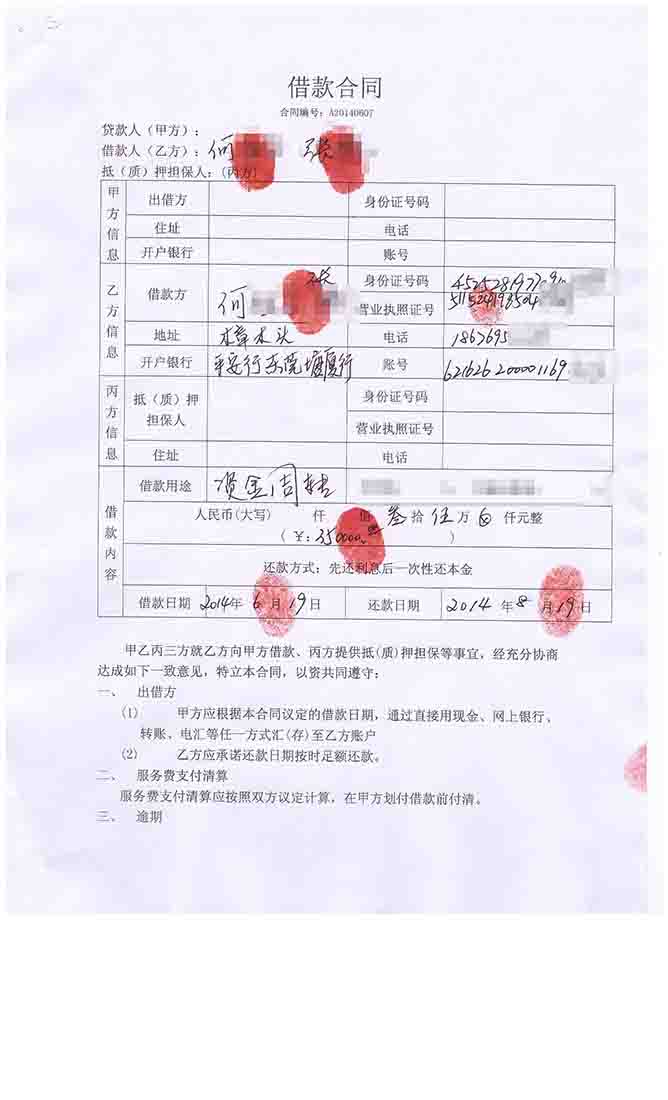 借款合同
合同编号：A20140607
贷款人（甲方）：
借款人（乙方）：何 张
抵（质）押担保人：（丙方）
甲方信息
出借方 身份证号码
住址 电话
开户银行 账号
乙方信息
借款方 何 张 身份证号码 4525281977
营业执照证号 511524198504
地址 木章木头 电话 1867695
开户银行 平安行东莞塘厦行 账号 621626200001169
丙方信息
抵（质）押担保人 身份证号码
营业执照证号
住址 电话
借款内容
借款用途 资金周转
人民币(大写) 仟 佰 叁 拾 伍 万 仟元整
（￥：350000.00 ）
还款方式：先还利息后一次性还本金
借款日期 2014年 6 月 19 日 还款日期 2014 年 8 月 19 日
甲乙丙三方就乙方向甲方借款、丙方提供抵(质)押担保等事宜，经充分协商
达成如下一致意见，特立本合同，以资共同遵守：
一、 出借方
(1) 甲方应根据本合同议定的借款日期，通过直接用现金、网上银行、
转账、电汇等任一方式汇(存)至乙方账户
(2) 乙方应承诺还款日期按时足额还款。
二、 服务费支付清算
服务费支付清算应按照双方议定计算，在甲方划付借款前付清。
三、 逾期